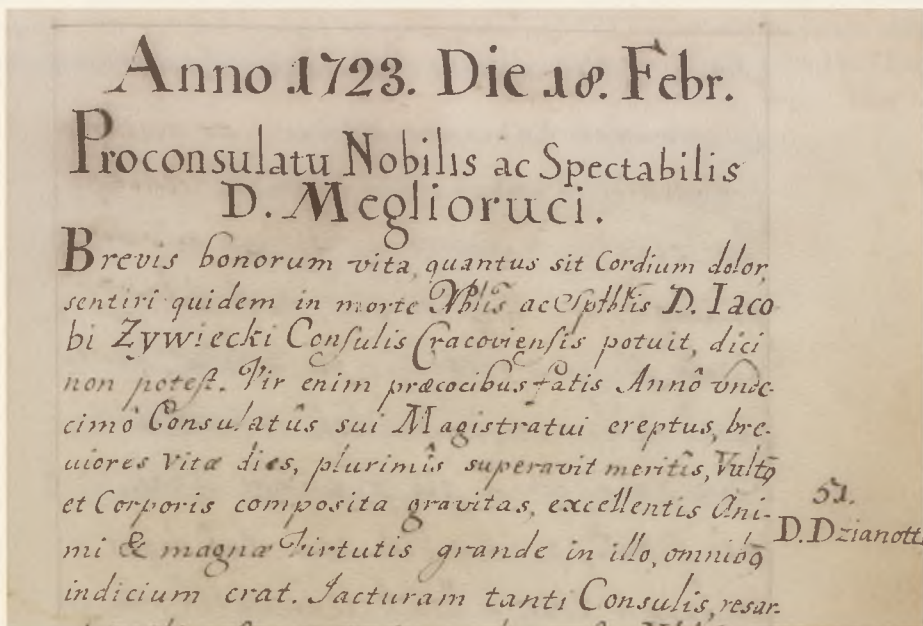 Anno 1723. Die 18. Febr.
Proconsulatu Nobilis ac Spectabilis
D. Meglioruci.
Brevis bonorum vita, quantus sit Cordium dolor,
sentiri quidem in morte Nblis ac Sptblis D. Iaco
bi Zywiecki Consulis Cracoviensis potuit, dici
non potest. Vir enim præcocibus fatis Annô vnde-
cimô Consulatûs sui Magistratui ereptus, bre-
uiores Vitæ dies, plurimîs superavit meritîs, Vultq̃
et Corporis composita gravitas, excellentis Ani-
mi & magnæ Virtutis grande in illo, omnibq̃
indicium erat. Jacturam tanti Consulis, resar-
51.
D. Dzianotti